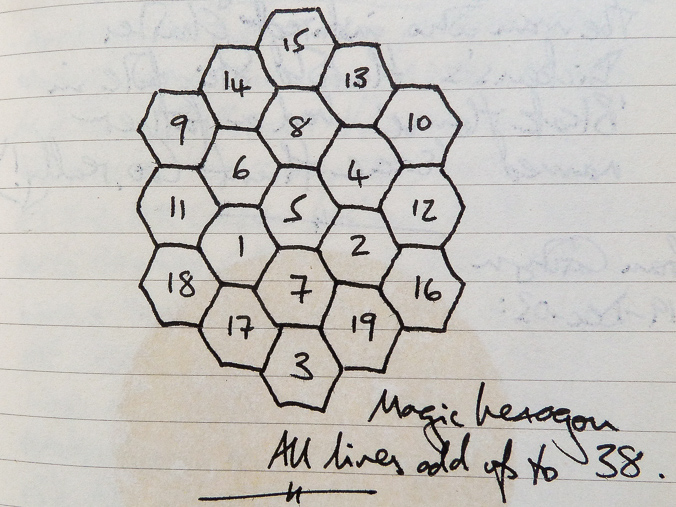 15
14 13
9 8 10
6 4
11 5 12
1 2
18 7 16
17 19
3
Magic hexagon
All lines add up to 38.